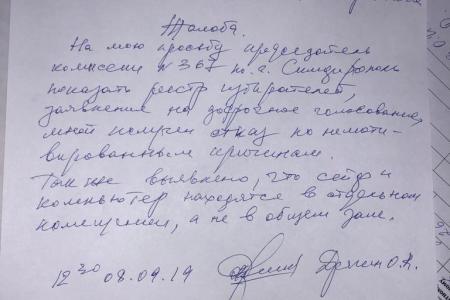 Жалоба.
На мою просьбу председатель
комиссии № 367 г. Симферополь
показать реестр избирателей,
заявления на досрочное голосование,
мной получен отказ по немоти-
вированным причинам.
Так же выявлено, что сейф и
компьютер находятся в отдельном
помещении, а не в общем зале.
12 30 08.09.19